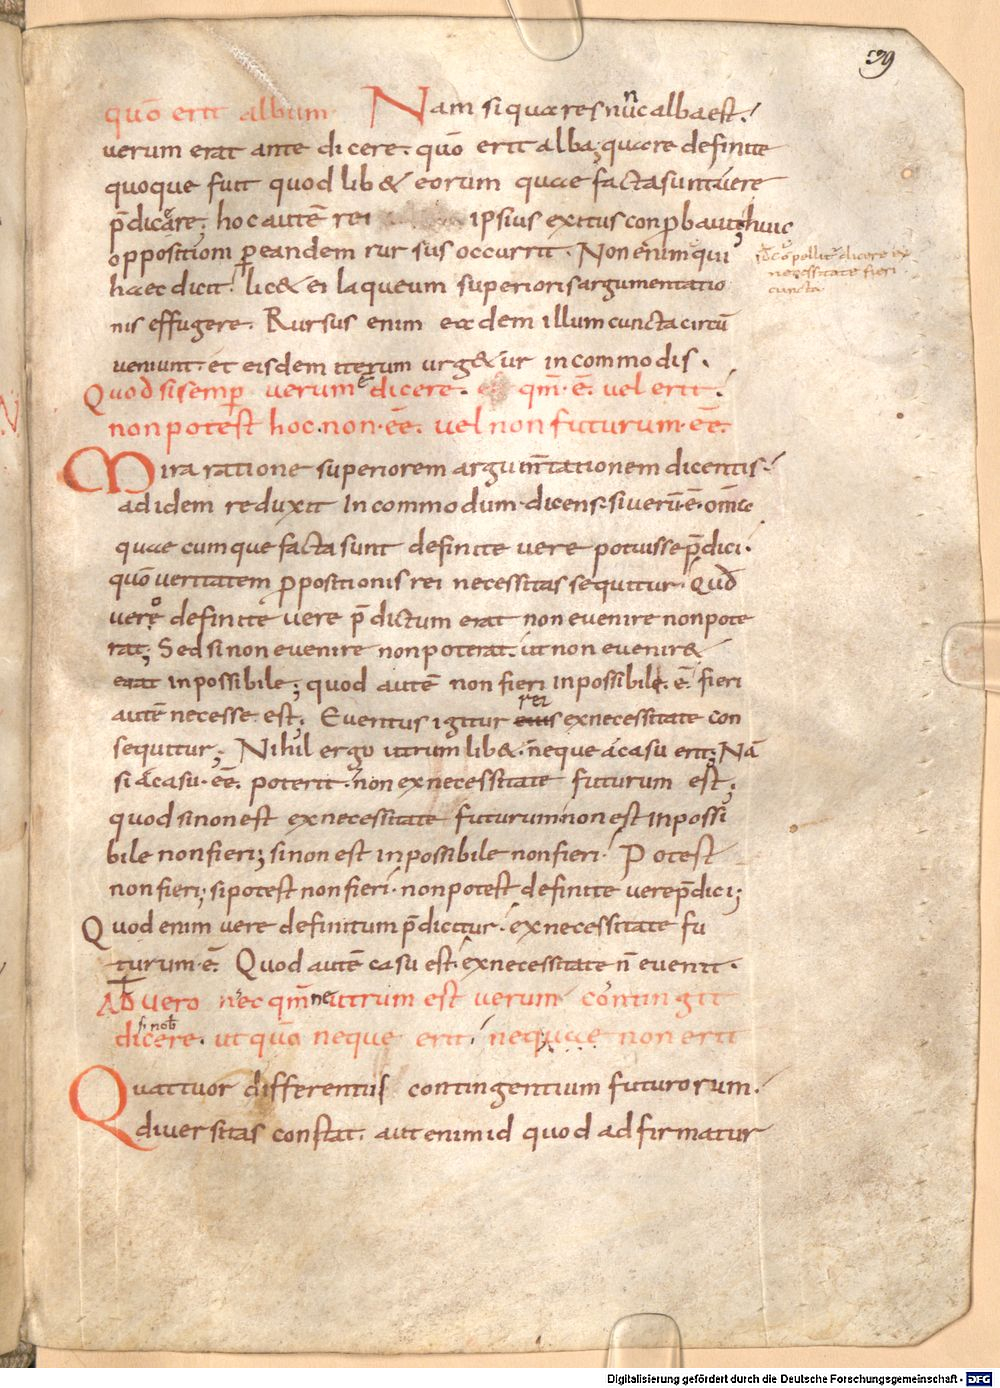 39
quō erit album Nam si quae res nūc alba est.
verum erat ante dicere. quō erit alba; quare definite
quoque fuit quod lib& eorum quae facta sunt vere
p̄dicare; hoc autē rei ipsius exitus conp̱bavit; huic
oppositioni p̱ eandem rursus occurrit. Non enim qui
haec dicit. lic& ei laqueum superioris argumentatio
nis effugere. Rursus enim eadem illum cuncta circū
veniunt. et eisdem iterum urg&ur incommodis.
necessitate fieri
cuncta
Quod si semp̱ verum ē dicere. qm̄ ē. vel erit.
non potest hoc non ēē. vel non futurum ēē.
Mira ratione superiorem argum̄tationem dicentis.
ad idem reduxit Incommodum. dicens. si verū ē. om̄ia
quae cumque facta sunt definite vere potuisse p̄dici.
quō veritatem p̱positionis rei necessitas sequitur. Quod
vero definite vere p̄dictum erat non evenire non pote
rat; Sed si non evenire non poterat. ut non evenir&
erat inpossibile; quod autē non fieri inpossibile ē. fieri
autē necesse est; Eventus igitur rei ex necessitate con
sequitur; Nihil ergo utrum lib&. neque a casu erit; Nā
si a casu ēē poterit. non ex necessitate futurum est;
quod si non est ex necessitate futurum non est Inpossi
bile non fieri; si non est inpossibile non fieri. Potest
non fieri; si potest non fieri. non potest definite vere p̄dici;
Quod enim vere definitum p̄dicitur. ex necessitate fu
turum ē. Quod autē casu est. ex necessitate n̄ evenit.
At vero nec qm̄ neutrum est verum contingit
dicere. ut quō neque erit. neque non erit
Quattuor differentiis contingentium futurorum.
diversitas constat. aut enim id quod adfirmatur
Digitalisierung gefördert durch die Deutsche Forschungsgemeinschaft - DFG